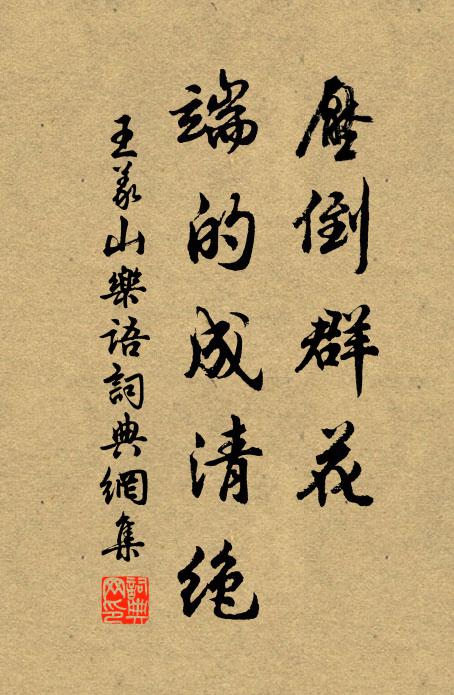 壓倒群花
端的成清絕
王義山樂語詞典網集
詞典
网印